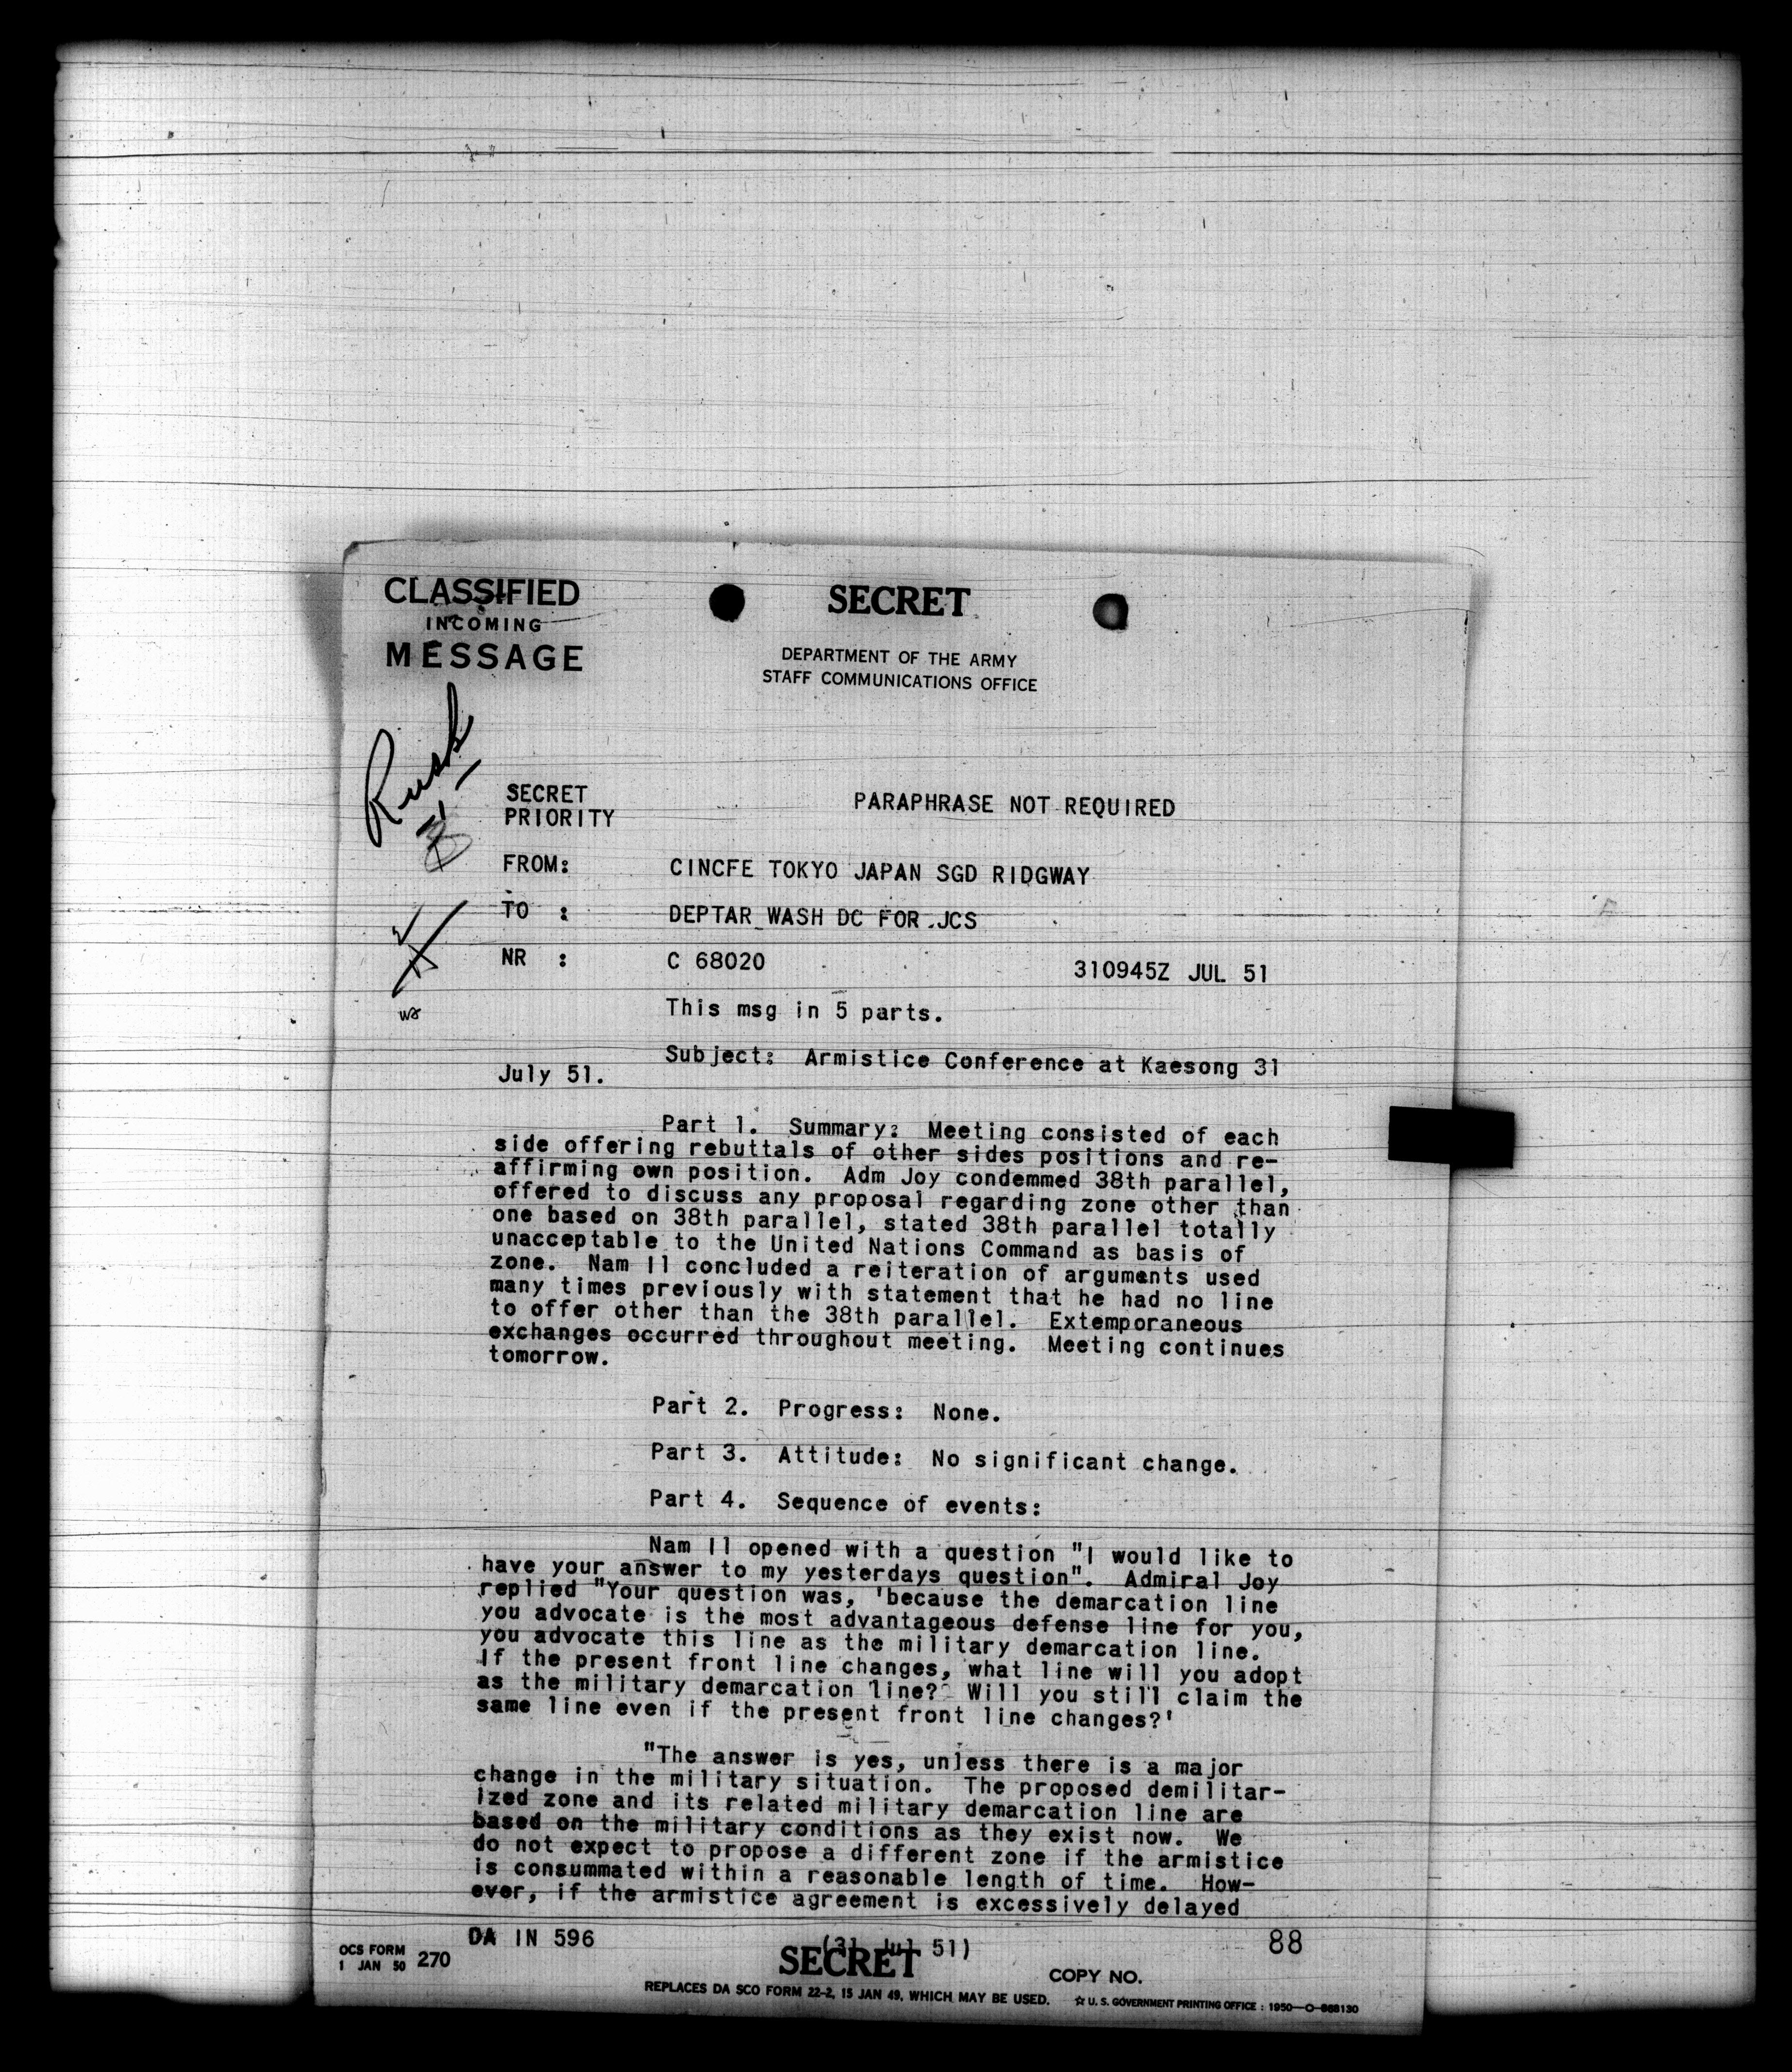 CLASSIFIED
INCOMING
MESSAGE
SECRET
DEPARTMENT OF THE ARMY
STAFF COMMUNICATIONS OFFICE
Rusk
SECRET
PRIORITY
PARAPHRASE NOT REQUIRED
FROM: CINCFE TOKYO JAPAN SGD RIDGWAY
TO : DEPTAR WASH DC FOR JCS
NR : C 68020 310945Z JUL 51
This msg in 5 parts.
Subject: Armistice Conference at Kaesong 31
July 51.
Part 1. Summary: Meeting consisted of each
side offering rebuttals of other sides positions and re-
affirming own position. Adm Joy condemmed 38th parallel,
offered to discuss any proposal regarding zone other than
one based on 38th parallel, stated 38th parallel totally
unacceptable to the United Nations Command as basis of
zone. Nam Il concluded a reiteration of arguments used
many times previously with statement that he had no line
to offer other than the 38th parallel. Extemporaneous
exchanges occurred throughout meeting. Meeting continues
tomorrow.
Part 2. Progress: None.
Part 3. Attitude: No significant change.
Part 4. Sequence of events:
Nam Il opened with a question "I would like to
have your answer to my yesterdays question". Admiral Joy
replied "Your question was, 'because the demarcation line
you advocate is the most advantageous defense line for you,
you advocate this line as the military demarcation line.
If the present front line changes, what line will you adopt
as the military demarcation line? Will you still claim the
same line even if the present front line changes?'
"The answer is yes, unless there is a major
change in the military situation. The proposed demilitar-
ized zone and its related military demarcation line are
based on the military conditions as they exist now. We
do not expect to propose a different zone if the armistice
is consummated within a reasonable length of time. How-
ever, if the armistice agreement is excessively delayed
DA IN 596 (31 Jul 51) 88
OCS FORM 270
1 JAN 50
SECRET
COPY NO.
REPLACES DA SCO FORM 22-2, 15 JAN 49, WHICH MAY BE USED.
☆ U. S. GOVERNMENT PRINTING OFFICE : 1950—O-868130